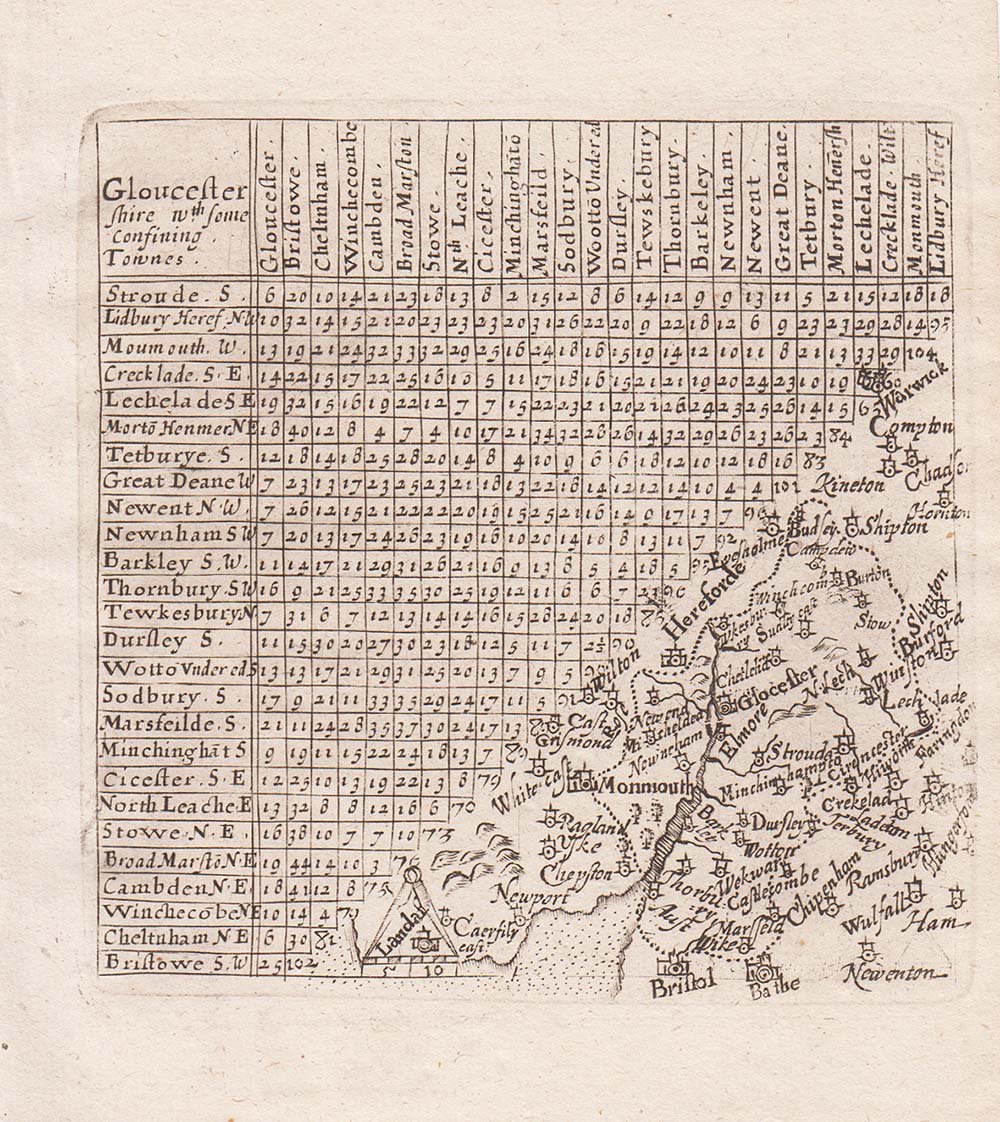 Gloucester
shire wth some
confining.
Townes.
Gloucester.
Bristowe.
Cheltnham.
Winchecombe
Cambden.
Broad Marston.
Stowe.
Nth Leache.
Cicester.
Minchinghātō
Marsfeild.
Sodbury.
Wottō Under ed
Dursley.
Tewskebury
Thornbury.
Barkeley.
Newnham.
Newent.
Great Deane.
Tetbury.
Morton Henersh
Lechelade.
Crecklade. Wilt
Monmouth.
Lidbury Heref
Stroude. S. 6 20 10 14 21 23 18 13 8 2 15 12 8 6 14 12 9 9 13 11 5 21 15 12 18 18
Lidbury Heref. N W 10 32 14 15 21 20 23 23 23 20 31 26 22 20 9 22 18 12 6 9 23 23 29 28 14 95
Moumouth. W. 13 19 21 24 32 33 32 29 25 16 24 18 16 15 19 14 12 10 11 8 21 13 33 29 104
Crecklade. S. E. 14 22 15 17 22 25 16 10 5 11 17 18 16 15 21 21 19 20 24 23 10 19
Lechelade S E 19 32 15 16 19 22 12 7 7 15 22 23 21 20 21 26 24 23 25 26 14 15
Mortō Henmer. N E 18 40 12 8 4 7 4 10 17 21 34 32 26 26 14 32 29 26 23 26 23 84
Tetburye. S. 12 18 14 18 25 28 20 14 8 4 10 9 6 6 18 12 10 12 18 16 83
Great Deane W 7 23 13 17 23 25 23 21 18 13 22 18 14 12 12 14 10 4 4 101
Newent N. W. 7 26 12 15 21 22 22 20 19 15 25 21 16 14 9 17 13 7
Newnham S W 7 20 13 17 24 26 23 19 16 10 20 14 10 8 13 11 7 92
Barkley S. W. 11 14 17 21 29 31 26 21 16 9 13 8 5 4 18 5
Thornbury. S. W 16 9 21 25 33 35 30 25 19 12 11 6 6 7 23 96
Tewkesbury. N. 7 31 6 7 12 13 14 14 16 15 28 24 20 18
Dursley S. 11 15 30 20 27 30 23 18 12 5 11 7 2½ 90
Wottō Vnder ed. S 13 13 17 21 29 31 25 20 13 7 9 5
Sodbury. S. 17 9 21 11 33 35 29 24 17 11 5
Marsfeilde. S. 21 11 24 28 35 37 30 24 17 13
Minchinghāt S 9 19 11 15 22 24 18 13 7
Cicester. S. E 12 25 10 13 19 22 13 8 79
North Leache. E 13 32 8 8 12 16 6 70
Stowe N. E. 16 38 10 7 7 10 73
Broad Marstō N. E 19 44 14 10 3 76
Cambden N. E. 18 41 12 8 75
Winchecōbe N E 10 14 4
Cheltnham N E 6 30 81
Bristowe S. W 25 102
Warwick
Compton
Kineton
Hornton
Evesholme
Budsley
Shipton
Campden
Hereforde
Winchcom
Burton
Stow
Slipton
Burford
Wilton
Chetlehā
Gloucester
N. Lech
Newend
Lech lade
Elmore
Micheldea
Newincham
Stroud
Cironcester
Faringdon
Grismond
White cast
Monmouth
Minchinghampto
Crekelad
Ragland
Vske
Dursley
Terbury
Hungerfo
Wotton
Chepston
Wekwar
Thorbury
Castlecombe
Chipenham
Ramsbury
Newport
Aust
Marsfeld
Wike
Wulfall
Ham
Landaf
Caerfily
cast
5 10
Bristol
Bathe
Newenton